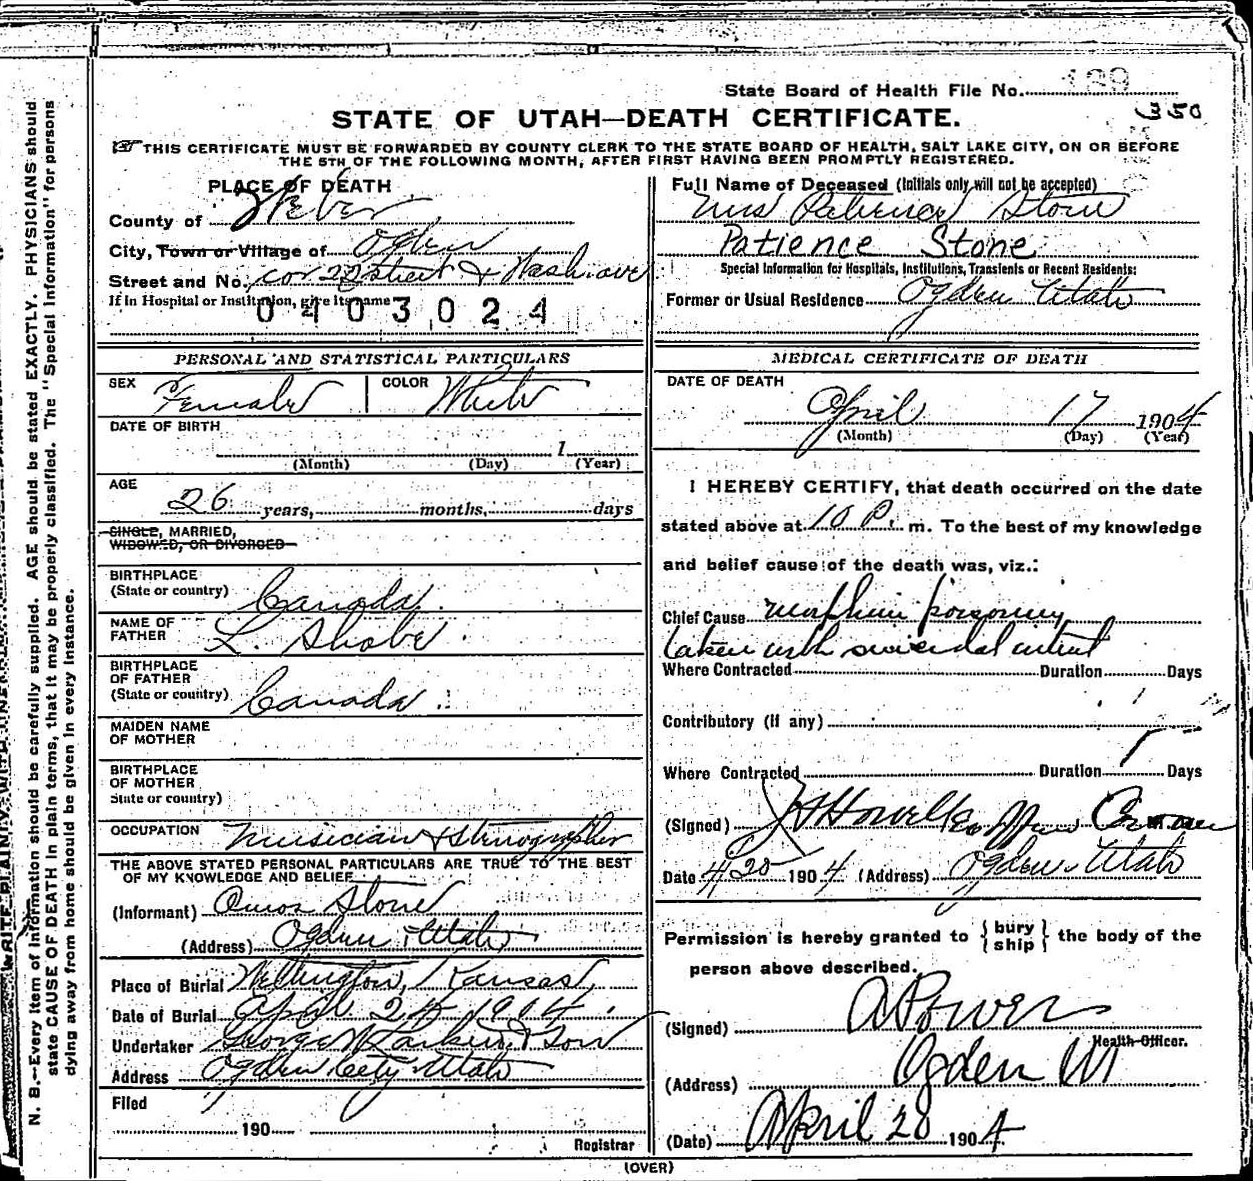 State Board of Health File No. 139
350
STATE OF UTAH—DEATH CERTIFICATE.
THIS CERTIFICATE MUST BE FORWARDED BY COUNTY CLERK TO THE STATE BOARD OF HEALTH, SALT LAKE CITY, ON OR BEFORE
THE 5TH OF THE FOLLOWING MONTH, AFTER FIRST HAVING BEEN PROMPTLY REGISTERED.
PLACE OF DEATH
County of Weber
City, Town or Village of Ogden
Street and No. cor 22 Street & Wash. ave
If in Hospital or Institution, give its name
0403024
Full Name of Deceased (Initials only will not be accepted)
Mrs Patience Stone
Patience Stone
Special Information for Hospitals, Institutions, Transients or Recent Residents:
Former or Usual Residence Ogden Utah
PERSONAL AND STATISTICAL PARTICULARS
SEX Female COLOR White
DATE OF BIRTH
1
(Month) (Day) (Year)
AGE
26 years, months, days
SINGLE, MARRIED,
WIDOWED, OR DIVORCED
BIRTHPLACE
(State or country) Canada
NAME OF
FATHER L. Shobe
BIRTHPLACE
OF FATHER
(State or country) Canada
MAIDEN NAME
OF MOTHER
BIRTHPLACE
OF MOTHER
State or country)
OCCUPATION Musician & Stenographer
THE ABOVE STATED PERSONAL PARTICULARS ARE TRUE TO THE BEST
OF MY KNOWLEDGE AND BELIEF
(Informant) Amos Stone
(Address) Ogden Utah
Place of Burial Wellington, Kansas,
Date of Burial April 24 1904.
Undertaker George W Larkin & Son
Address Ogden City Utah
Filed
190
Registrar
MEDICAL CERTIFICATE OF DEATH
DATE OF DEATH
April 17 1904
(Month) (Day) (Year)
I HEREBY CERTIFY, that death occurred on the date
stated above at 10 P. m. To the best of my knowledge
and belief cause of the death was, viz.:
Chief Cause morphine poisoning
taken with suicidal intent
Where Contracted Duration Days
Contributory (If any)
Where Contracted Duration Days
(Signed) J Howell
Date 4/20 1904 (Address) Ogden Utah
Permission is hereby granted to { bury ship } the body of the
person above described.
(Signed) A Power
Health Officer.
(Address) Ogden Ut
(Date) April 20 1904
(OVER)
N. B.—Every item of information should be carefully supplied. AGE should be stated EXACTLY. PHYSICIANS should
state CAUSE OF DEATH in plain terms, that it may be properly classified. The "Special Information" for persons
dying away from home should be given in every instance.